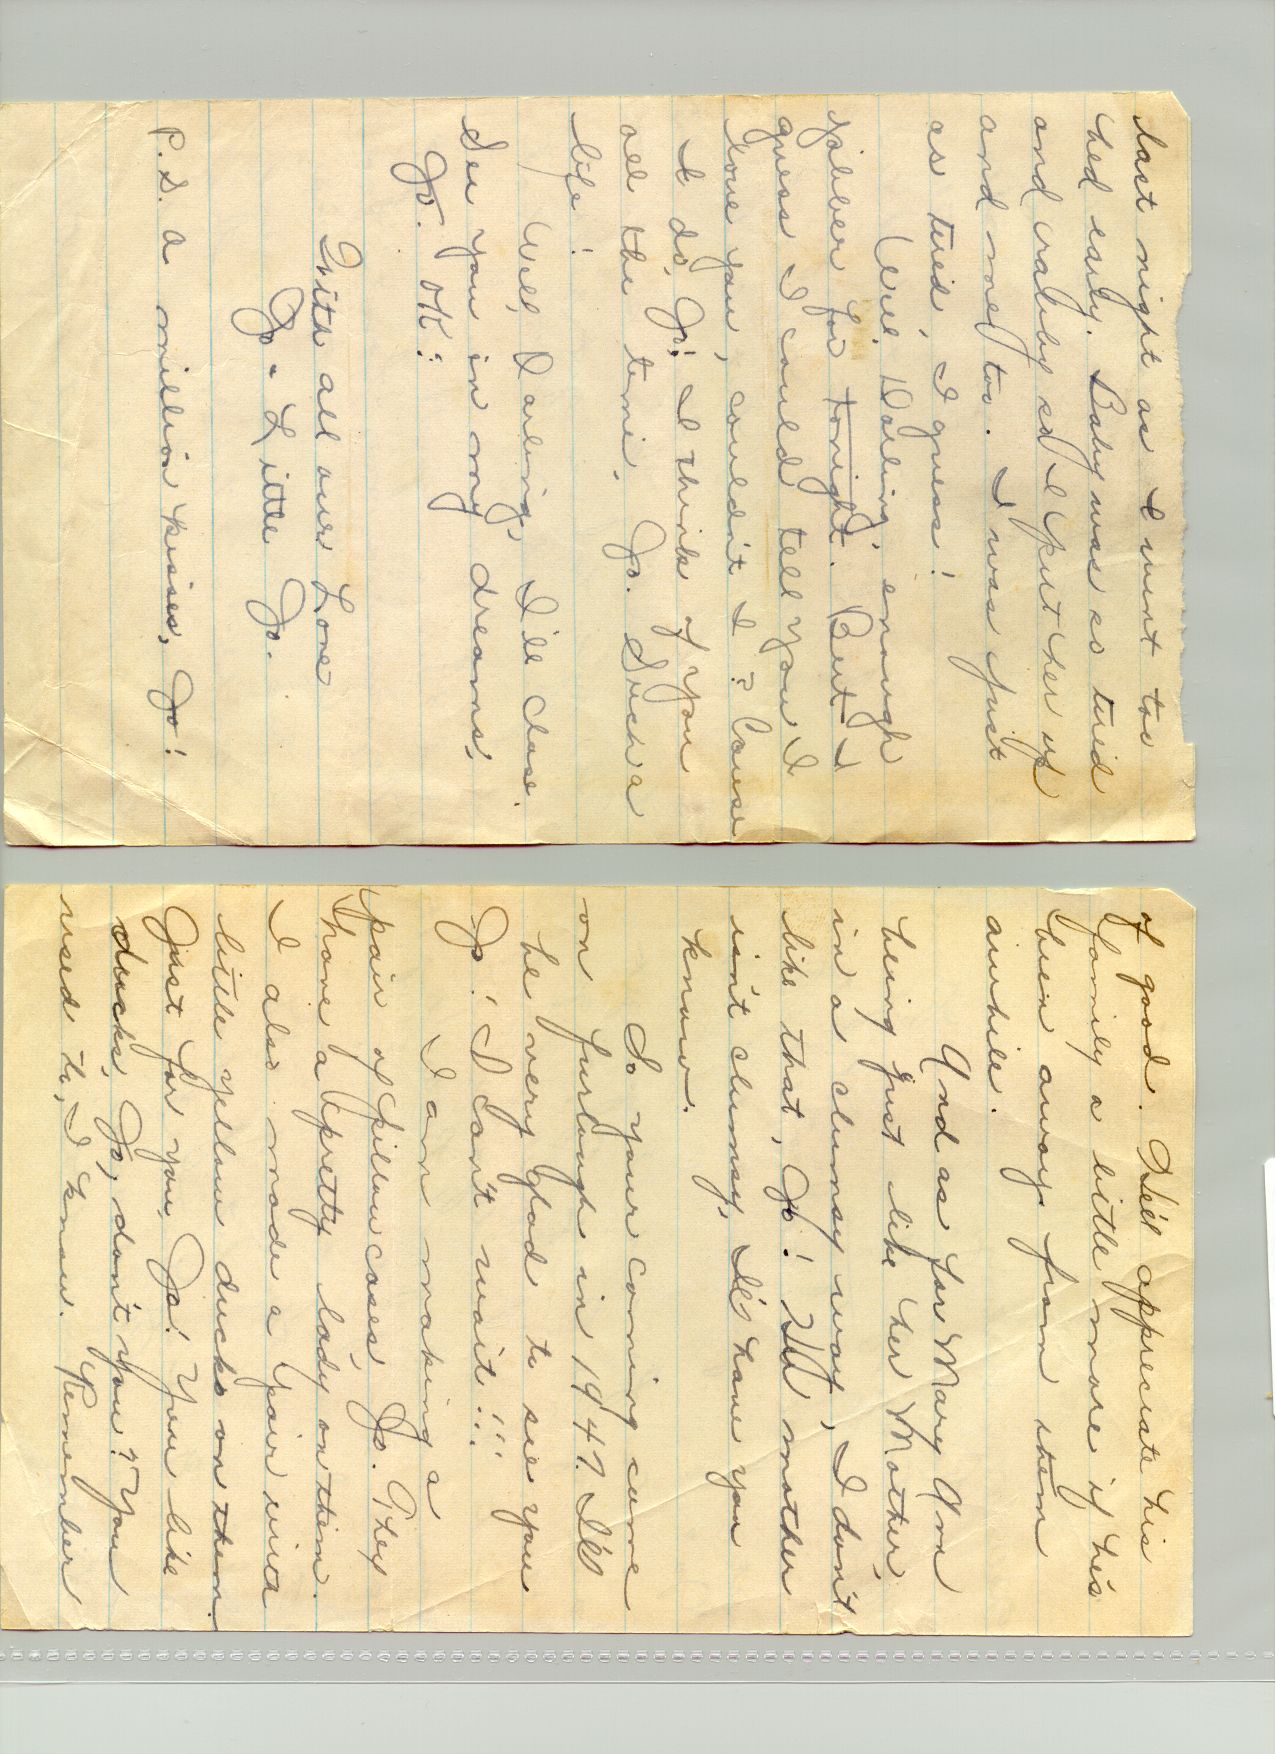 last night as I went too
bed early. Baby was so tired
and crabby so I put her up
and me too. I was just
as tired, I guess!
Well Darling, enough
jibber for tonight. But I
guess I could tell you I
love you, couldn't I? Cause
I do, Jo! I think of you
all the time. Jo. Such a
life!
Well, Darling, I'll close.
See you in my dreams,
Jo. OK?
With all our Love
Jo - Little Jo.
P.S. A million kisses, Jo!
of good. He'll appreciate his
family a little more if he's
been away from them
awhile.
And as for Mary Ann
being just like her Mother,
in a clumsy way, I don't
like that, Jo! Her mother
isn't clumsy, I'll have you
know.
So your coming come
on furlough in 1947. I'll
be very glad to see you
Jo! I can't wait!!!
I am making a
pair of pillow cases, Jo. They
have a pretty lady on them.
I also made a pair with
little yellow ducks on them.
Just for you, Jo! You like
ducks, Jo, don't you? You
used to, I know. Remember